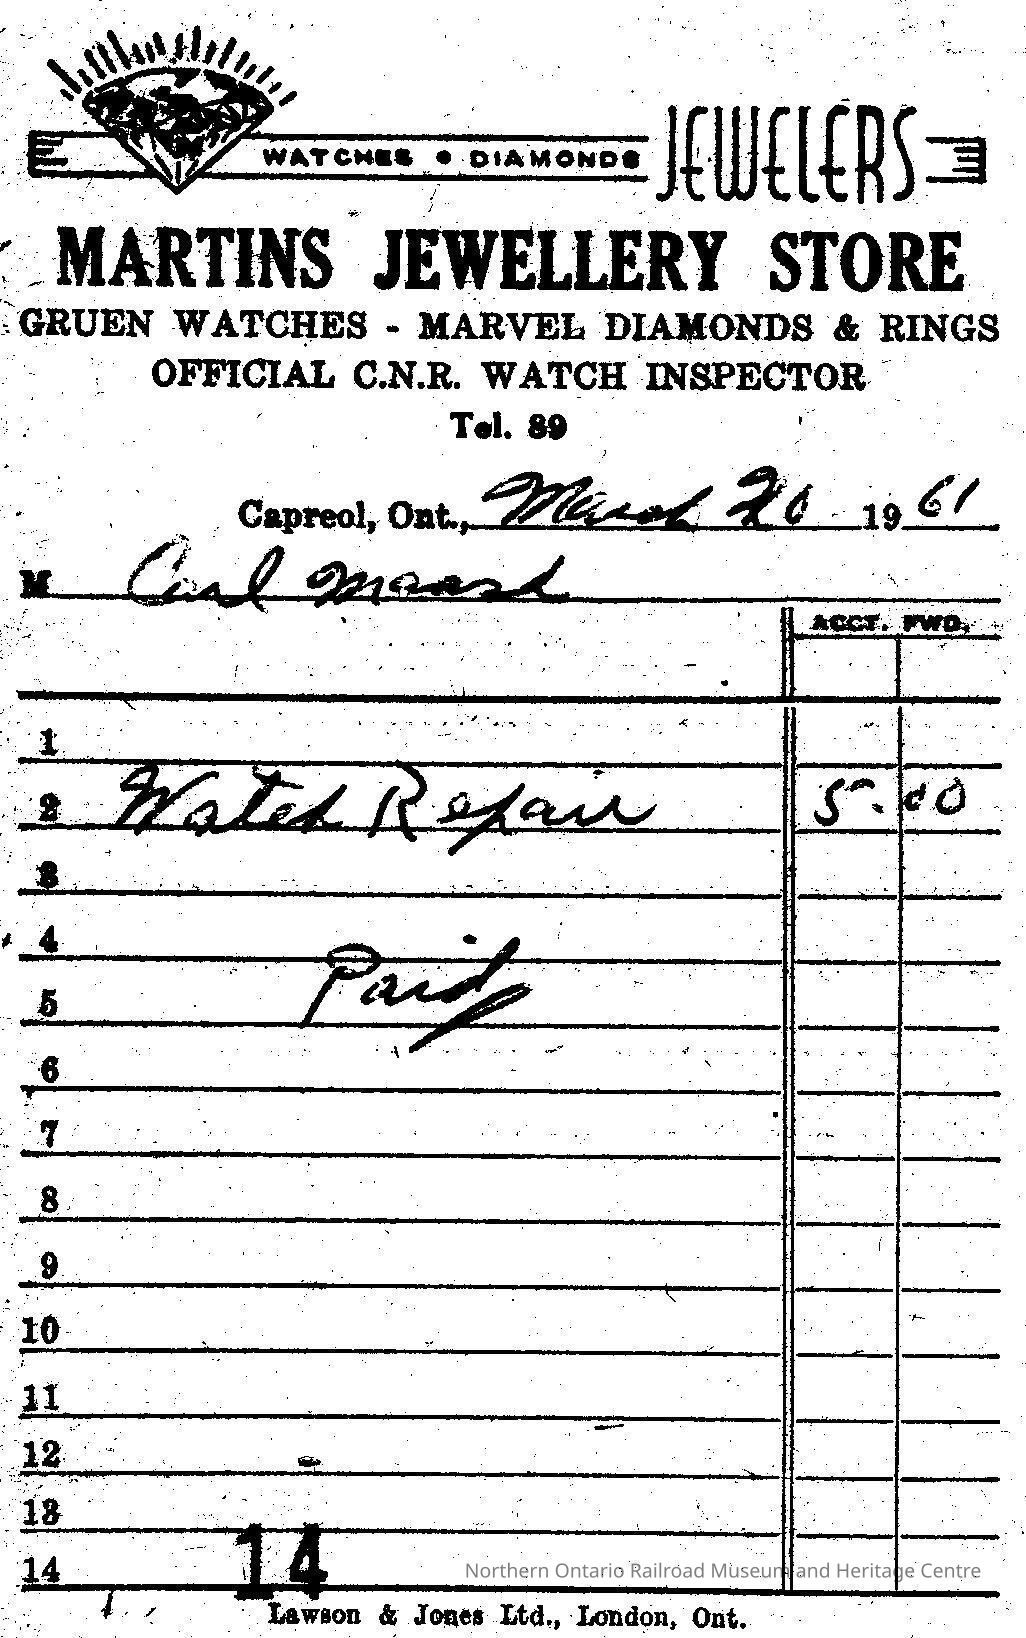 WATCHES • DIAMONDS JEWELERS
MARTINS JEWELLERY STORE
GRUEN WATCHES - MARVEL DIAMONDS & RINGS
OFFICIAL C.N.R. WATCH INSPECTOR
Tel. 89
Capreol, Ont., March 20 1961
M Carl
ACCT. FWD.
1
2 Watch Repair 5.00
3
4
5 Paid
6
7
8
9
10
11
12
13
14 14
Northern Ontario Railroad Museum and Heritage Centre
Lawson & Jones Ltd., London, Ont.